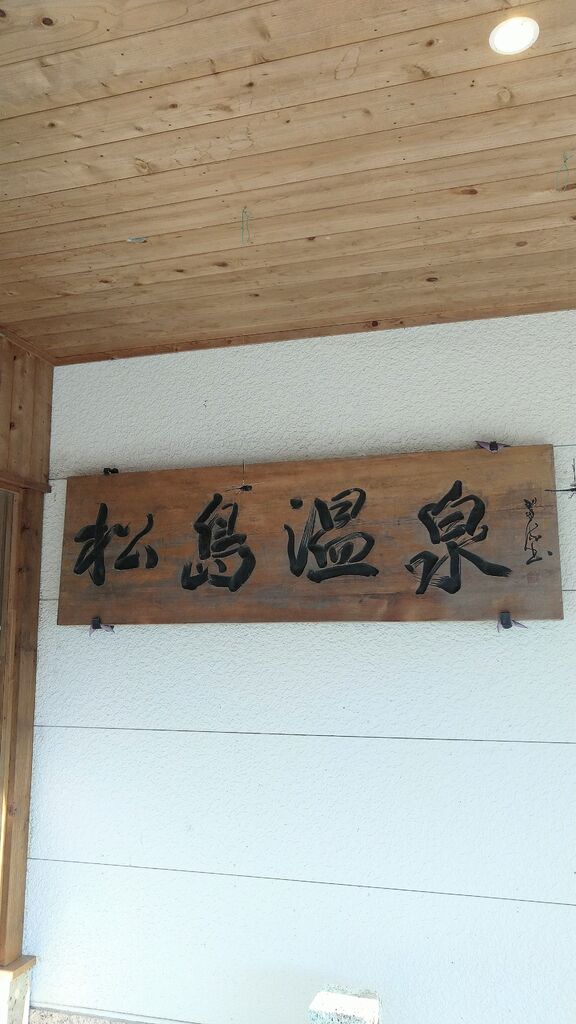 松島温泉